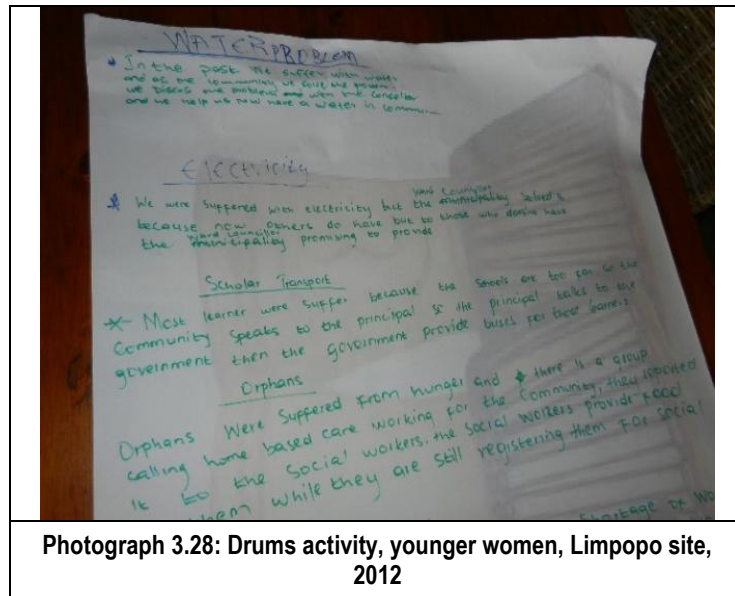 WATER PROBLEM
In the past we suffer with water
and as the community we
we discuss our problems and with the
and we help us now have a water in
Electricity
Ward Councillor
We were suffered with electricity but the municipality
because now others do have but to those who
Ward Councillor
the municipality promising to provide
Scholar Transport
Most learner were suffer because the schools are too far so the
community speaks to the principal so the principal talks to the
government then the government provide buses for learners
Orphans
Orphans were suffered from hunger and there is a group
calling home based care working for the community, they reported
it to the social workers, the social workers provide food
them while they are still registering them for social
shortage of
Photograph 3.28: Drums activity, younger women, Limpopo site,
2012